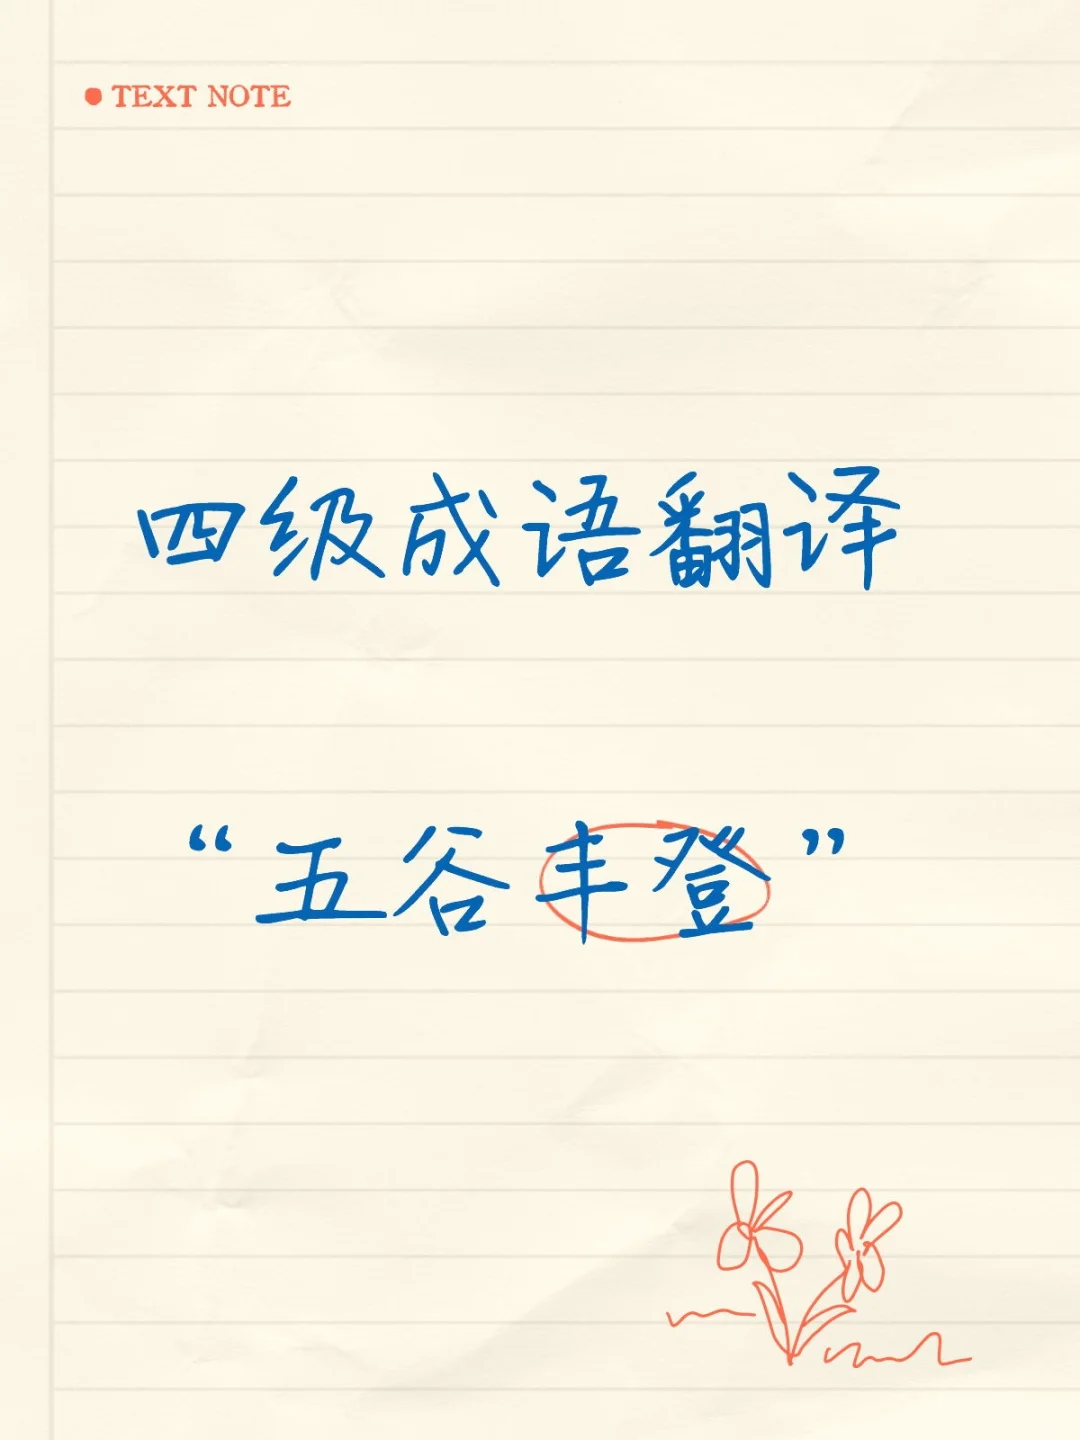 TEXT NOTE
四级成语翻译
“五谷丰登”